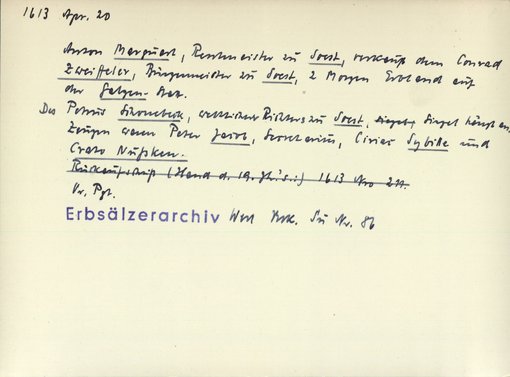 1613 Apr. 20
Anton Marquart, Rentmeister zu Soest, verkauft dem Conrad
Zweiffeler, Bürgermeister zu Soest, 2 Morgen Erbland auf
der Galgen-
Des Petrus weltlichen Richters zu Soest, Siegel hängt an.
Zeugen waren Peter Jacob, Secretarius, Sybide und
Crato Nußken.
Rückaufschrift (Hand d. 19. Jh's.:) 1613 Nro 211.
Or. Pgt.
Erbsälzerarchiv Werl Urk. Nr. 86